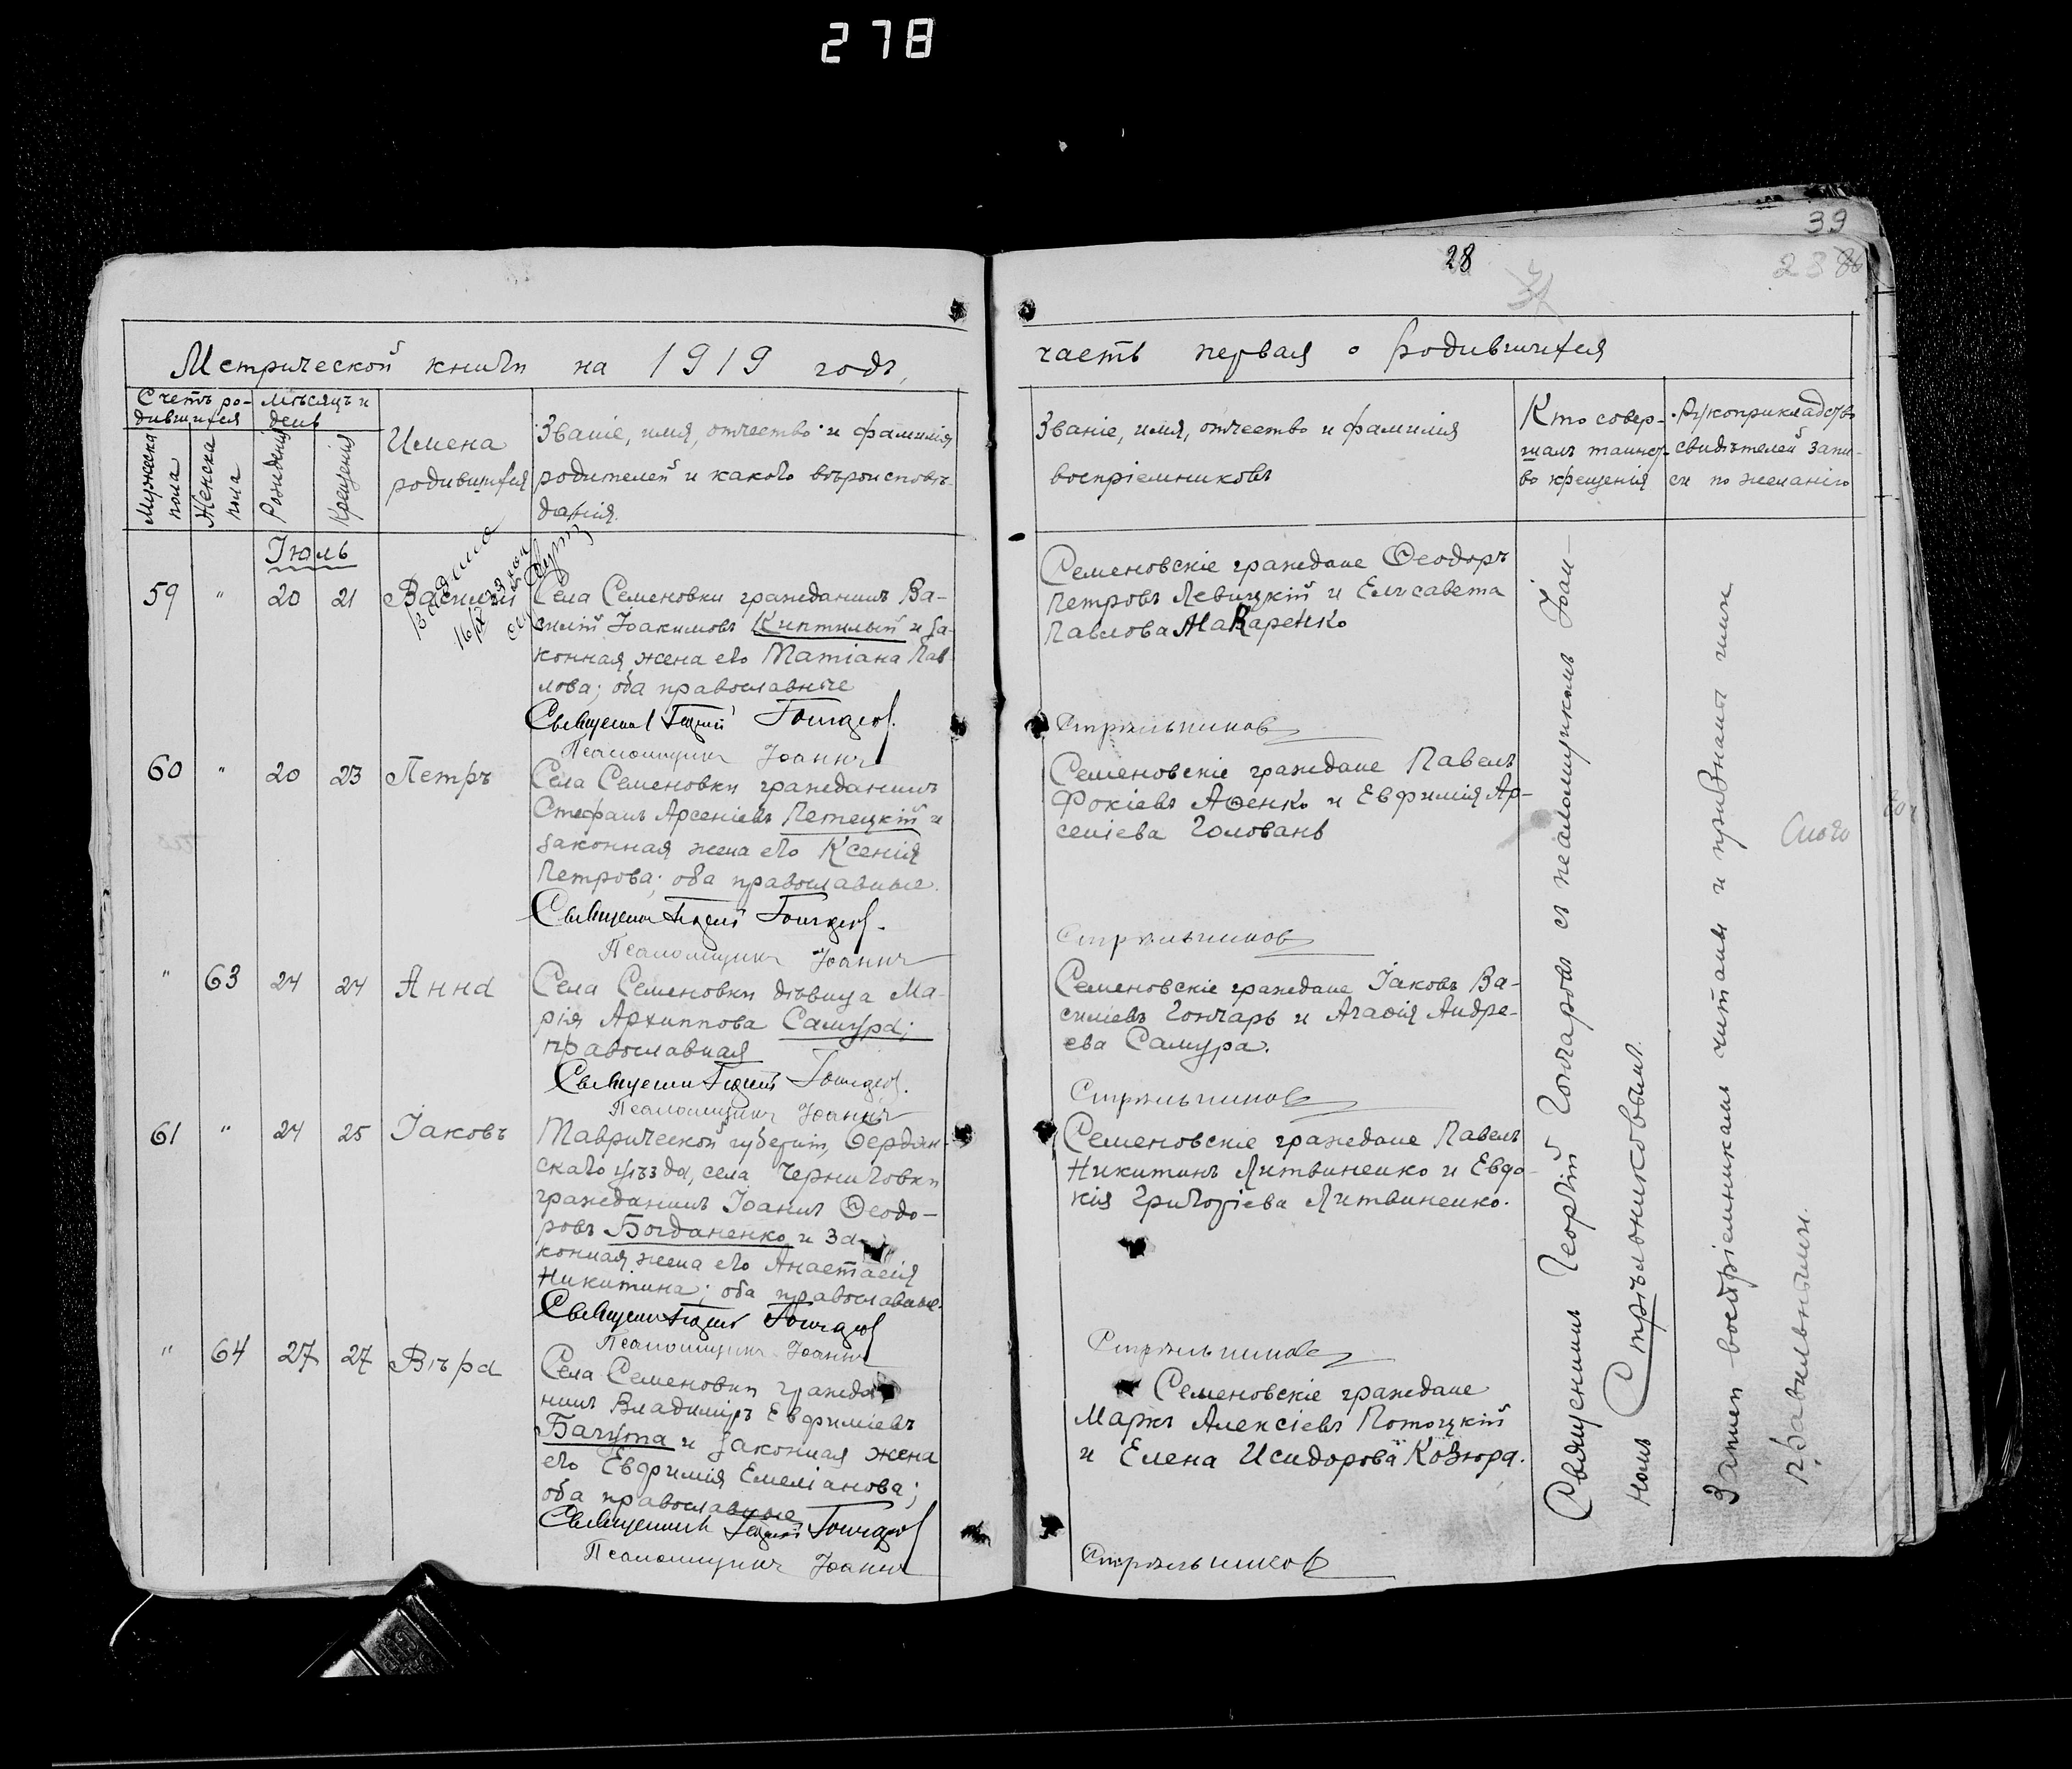 278
39
28
Метрической книги на 1919 годъ,
часть первая о родившихся
Счетъ ро-
дившихся
Мѣсяцъ и
день
Мужеска
пола
Женска
пола
Рожденія
Крещенія
Имена
родившихся
Званіе, имя, отчество и фамилія
родителей и какого вѣроисповѣ-
данія.
Званіе, имя, отчество и фамилія
воспріемниковъ
Кто совер-
шалъ таинст-
во крещенія
Рукоприкладство
свидѣтелей запи-
си по желанію
Іюль
59 " 20 21 Василій
Села Семеновки гражданинъ Ва-
силій Іоакимовъ Киптилый и за-
конная жена его Татіана Пав-
лова; оба православные
Священникъ Георгій Гончаровъ.
Псаломщикъ Іоаннъ
Семеновскіе граждане Ѳеодоръ
Петровъ Левицкій и Елисавета
Павлова Макаренко
Стрѣльниковъ
60 " 20 23 Петръ
Села Семеновки гражданинъ
Стефанъ Арсеніевъ Петецкій и
законная жена его Ксенія
Петрова; оба православные.
Священникъ Георгій Гончаровъ.
Псаломщикъ Іоаннъ
Семеновскіе граждане Павелъ
Фокіевъ Аѳенко и Евфимія Ар-
сеніева Головань
Стрѣльниковъ
" 63 24 24 Анна
Села Семеновки дѣвица Ма-
рія Архиппова Самура;
православная
Священникъ Георгій Гончаровъ.
Псаломщикъ Іоаннъ
Семеновскіе граждане Іаковъ Ва-
силіевъ Гончарь и Агаѳія Андре-
ева Самура.
Стрѣльниковъ
61 " 24 25 Іаковъ
Таврической губерніи, Бердян-
скаго уѣзда, села Черниговки
гражданинъ Іоаннъ Ѳеодо-
ровъ Богданенко и за-
конная жена его Анастасія
Никитина; оба православные.
Священникъ Георгій Гончаровъ
Псаломщикъ Іоаннъ
Семеновскіе граждане Павелъ
Никитинъ Литвиненко и Евдо-
кія Григоріева Литвиненко.
Стрѣльниковъ
" 64 27 27 Вѣра
Села Семеновки гражда-
нинъ Владиміръ Евфиміевъ
Багута и законная жена
его Евфимія Емеліанова;
оба православные
Священникъ Георгій Гончаровъ
Псаломщикъ Іоаннъ
Семеновскіе граждане
Маркъ Алексіевъ Потоцкій
и Елена Исидорова Козюра.
Стрѣльниковъ
Священникъ Георгій Гончаровъ съ псаломщикомъ Іоан-
номъ Стрѣльниковымъ.
Записи воспріемникамъ читаны и признаны ими
правильными.